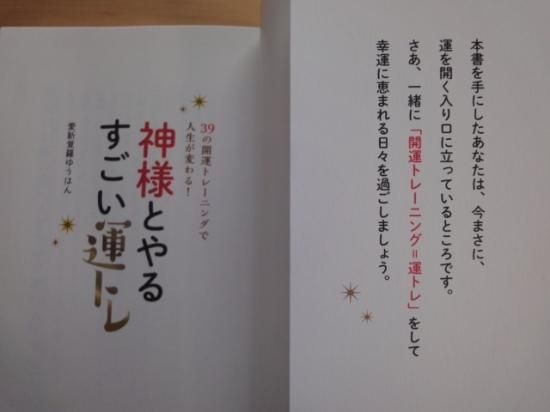 本書を手にしたあなたは、今まさに、
運を開く入り口に立っているところです。
さあ、一緒に「開運トレーニング＝運トレ」をして
幸運に恵まれる日々を過ごしましょう。
39の開運トレーニングで
人生が変わる！
神様とやる
すごい運トレ
愛新覚羅ゆうはん